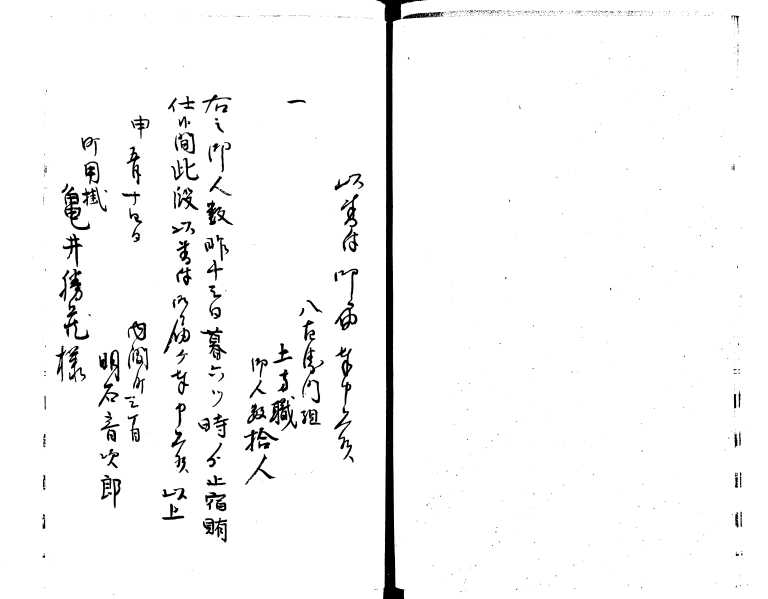 以書付御届奉申上候
一
八右衛門組
土方職
御人数拾人
右之御人数昨十三日暮六ツ時ゟ止宿賄
仕候間此段以書付御届ケ奉申上候以上
申 五月十四日
内澗町三丁目
明石音次郎
町用掛
亀井勝蔵様